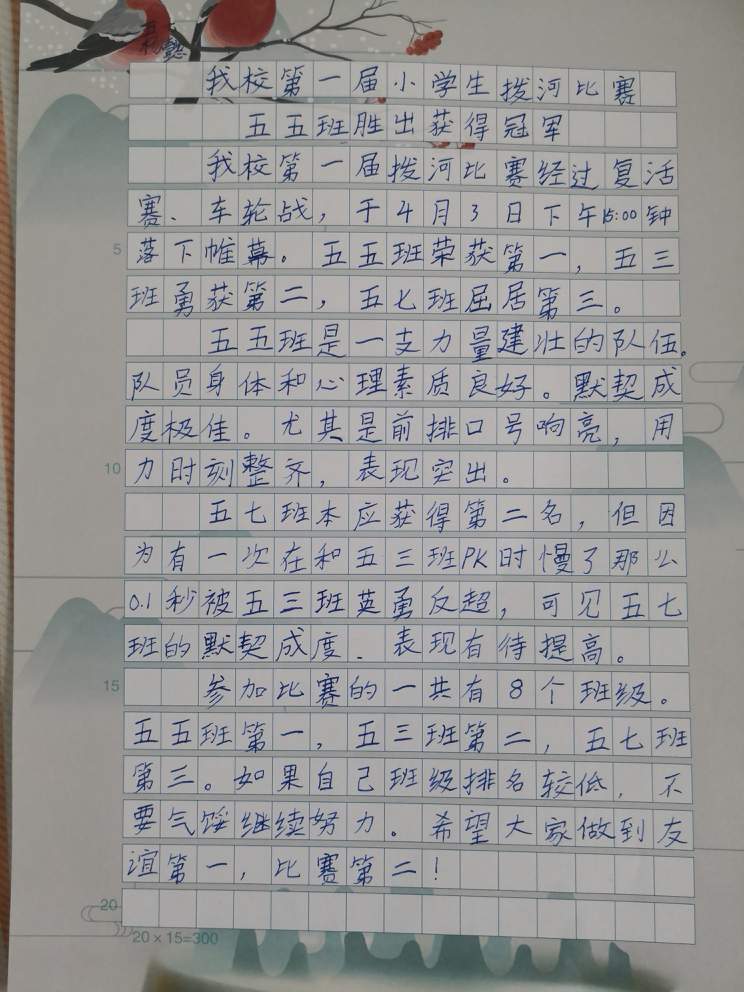 我校第一届小学生拨河比赛
五五班胜出获得冠军
我校第一届拨河比赛经过复活
赛、车轮战，于4月3日下午15:00钟
5
落下帷幕。五五班荣获第一，五三
班勇获第二，五七班屈居第三。
五五班是一支力量建壮的队伍。
队员身体和心理素质良好。默契成
度极佳。尤其是前排口号响亮，用
10
力时刻整齐，表现突出。
五七班本应获得第二名，但因
为有一次在和五三班PK时慢了那么
0.1秒被五三班英勇反超，可见五七
班的默契成度、表现有待提高。
15
参加比赛的一共有8个班级。
五五班第一，五三班第二，五七班
第三。如果自己班级排名较低，不
要气馁继续努力。希望大家做到友
谊第一，比赛第二！
20
20×15=300